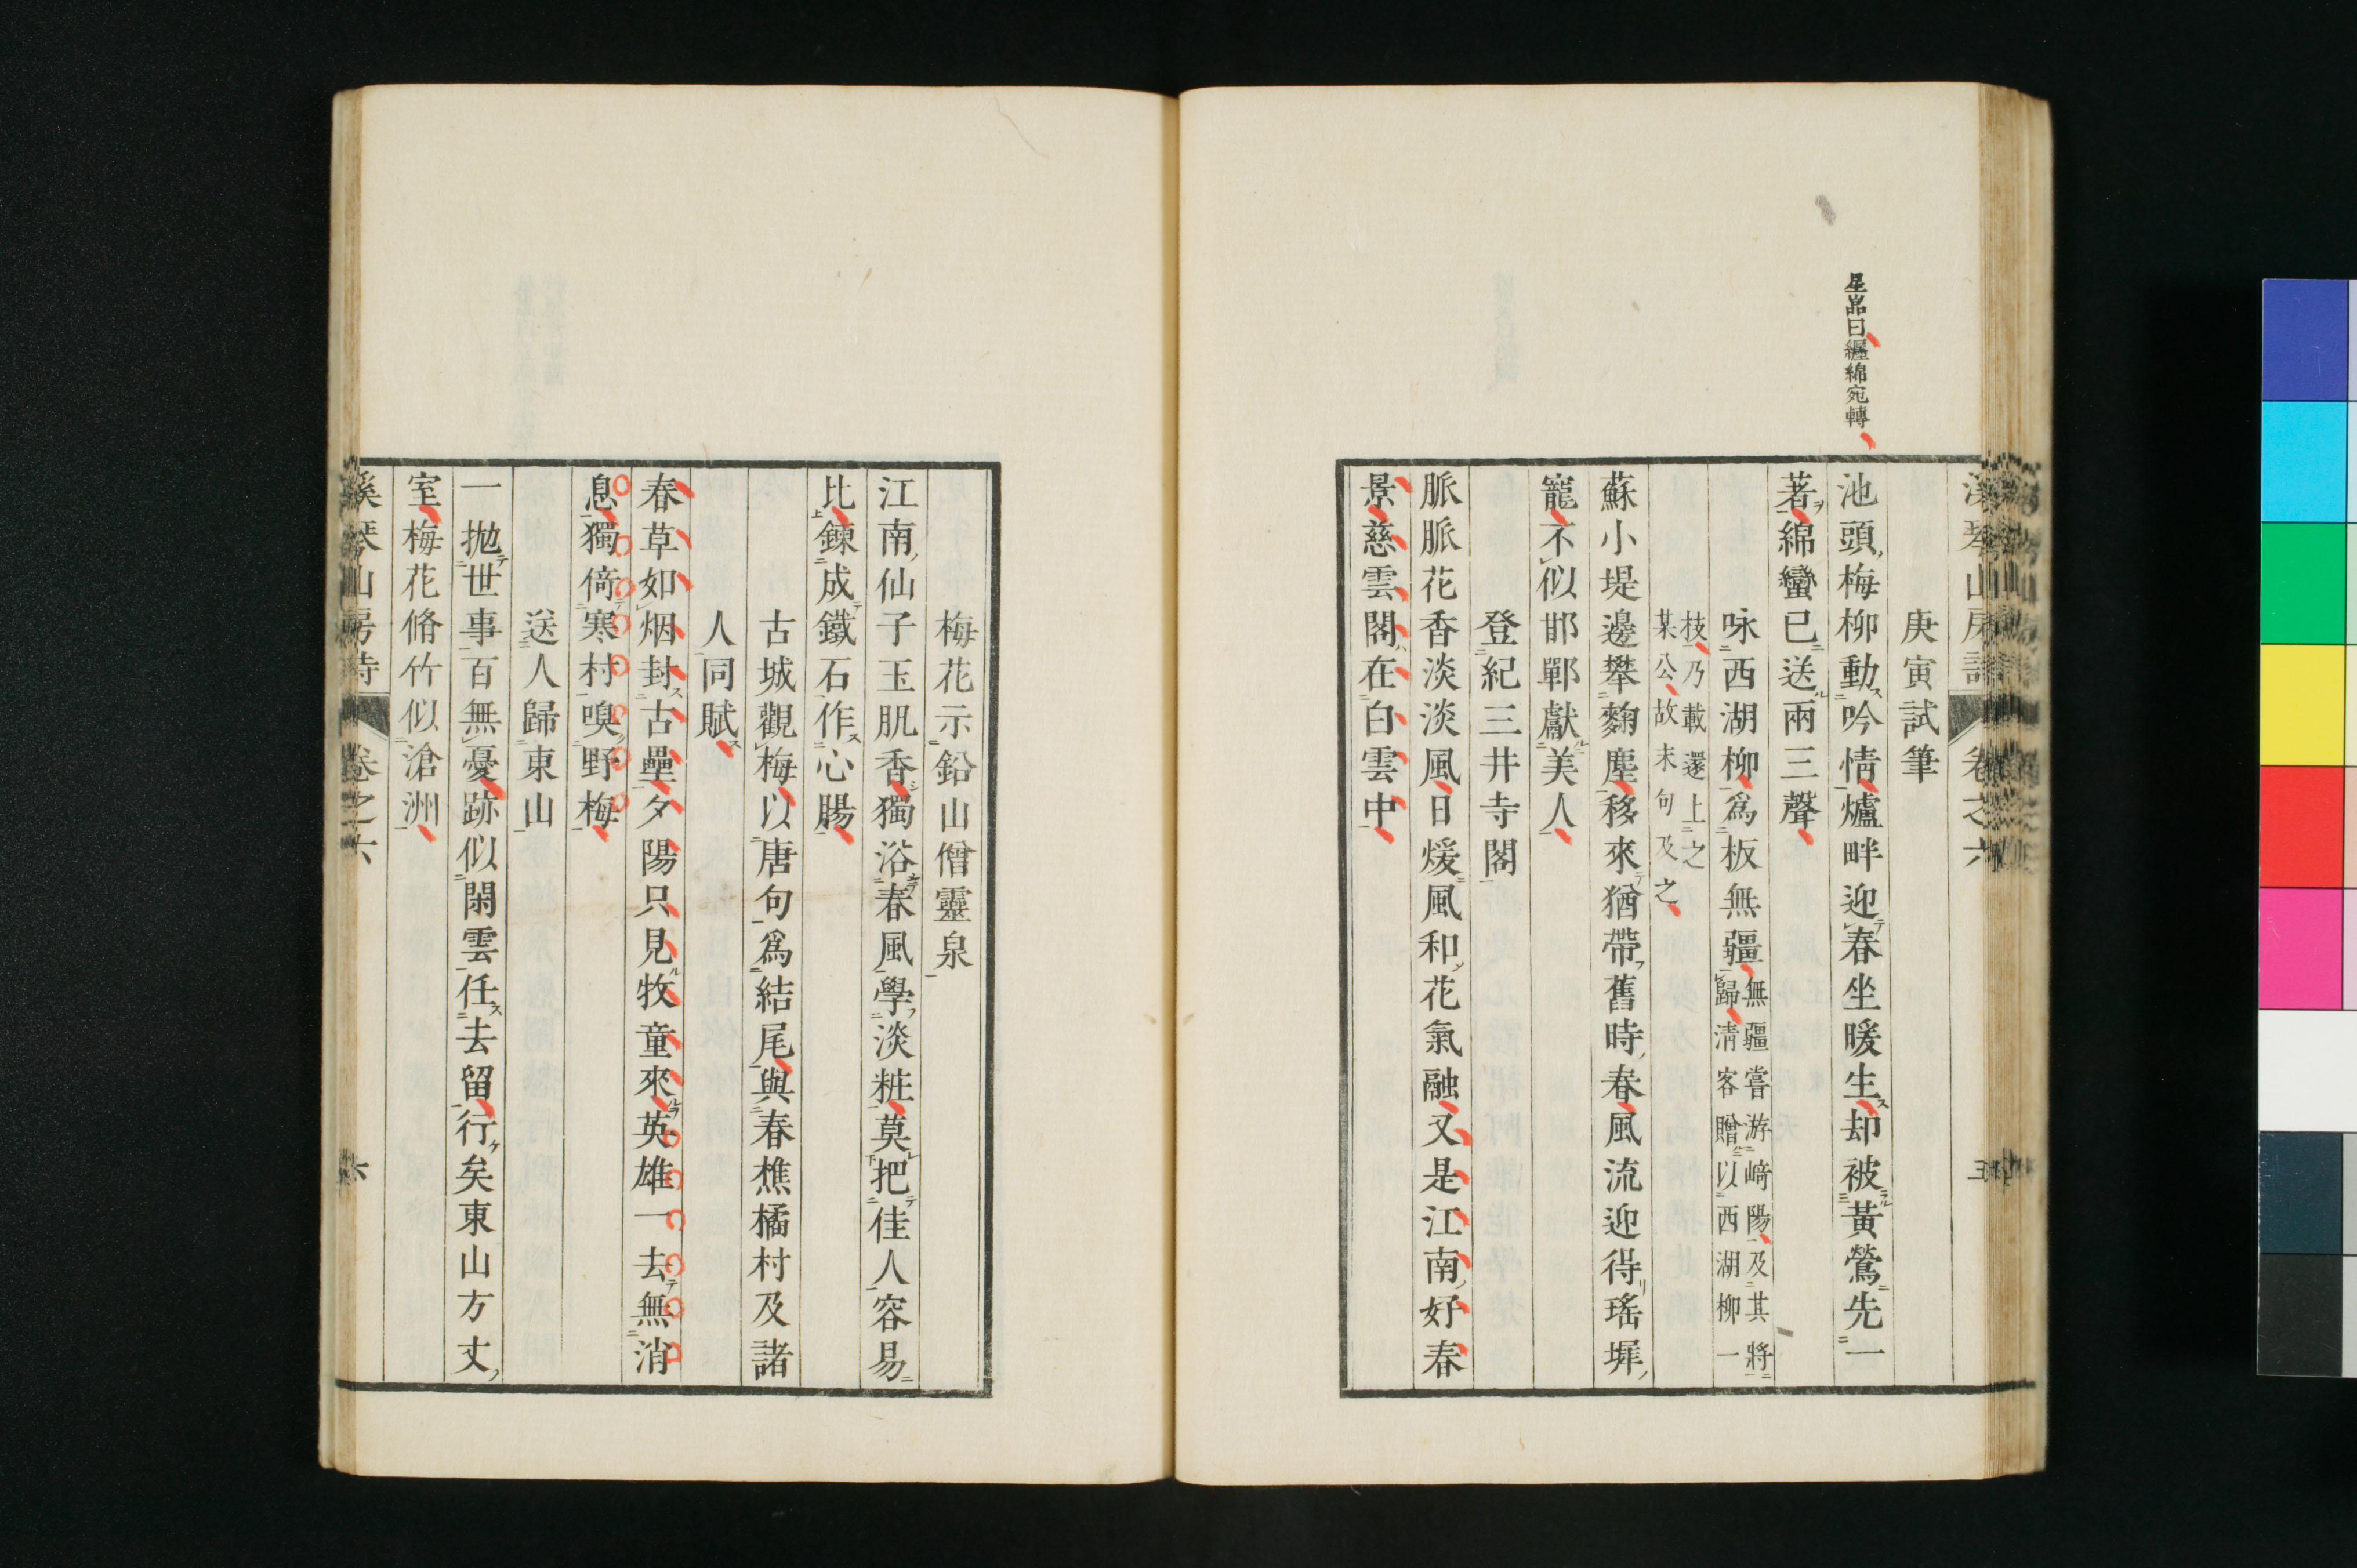 星喦曰纏綿宛轉
庚寅試筆
池頭梅柳動吟情爐畔迎春坐暖生却被黃鶯先一
著綿蠻已送兩三聲
咏西湖柳爲板無疆無疆嘗游崎陽及其將
歸淸客贈以西湖柳一
枝乃載還上之
某公故末句及之
蘇小堤邊攀麴塵移來猶帶舊時春風流迎得瑤墀
寵不似邯鄲獻美人
登紀三井寺閣
脈脈花香淡淡風日煖風和花氣融又是江南好春
景慈雲閣在白雲中
梅花示鉛山僧靈泉
江南仙子玉肌香獨浴春風學淡粧莫把佳人容易
比鍊成鐵石作心腸
古城觀梅以唐句爲結尾與春樵橘村及諸
人同賦
春草如烟封古壘夕陽只見牧童來英雄一去無消
息獨倚寒村嗅野梅
送人歸東山
一拋世事百無憂跡似閑雲任去留行矣東山方丈
室梅花脩竹似滄洲
溪琴山房詩 卷之六